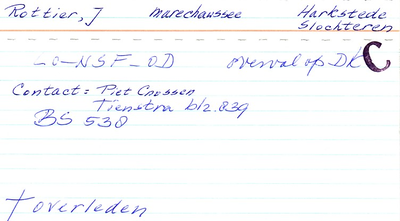 Rottier, J Marechaussee Harkstede
Slochteren
-O-NSF-OD overval op DK C
Contact: Piet Cnossen
Tienstra blz. 839
BS 538
† overleden